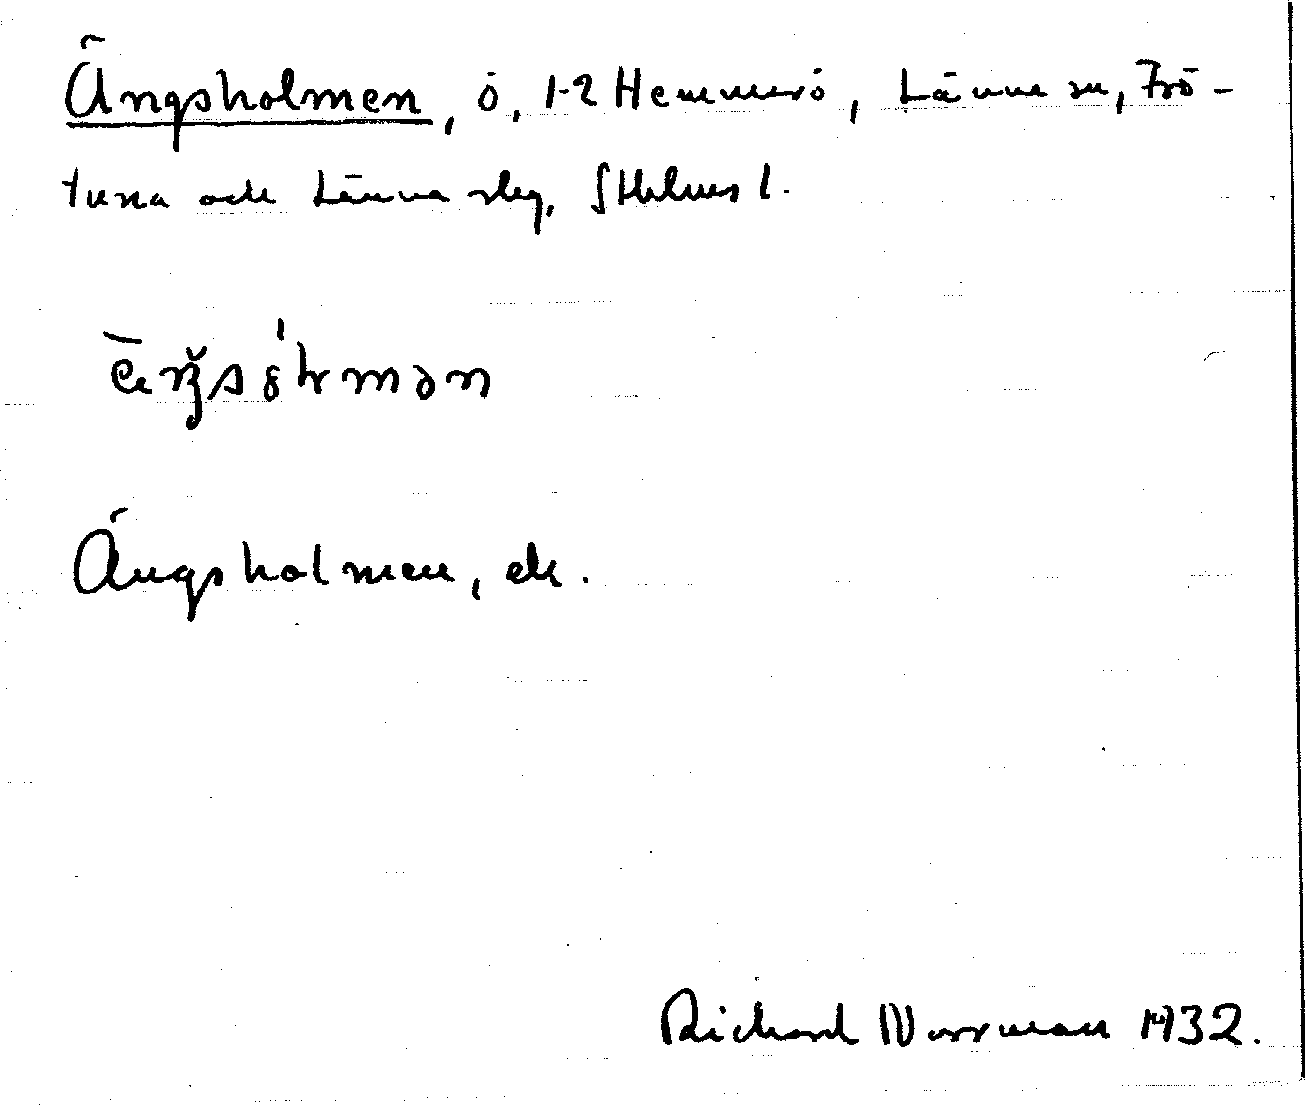 Ängsholmen, ö, 1-2 Hemmerö, Länna sn, Frö-
tuna och Länna skg, Sthlms l.
Ängsholmen, ek.
Richard Norrman 1932.